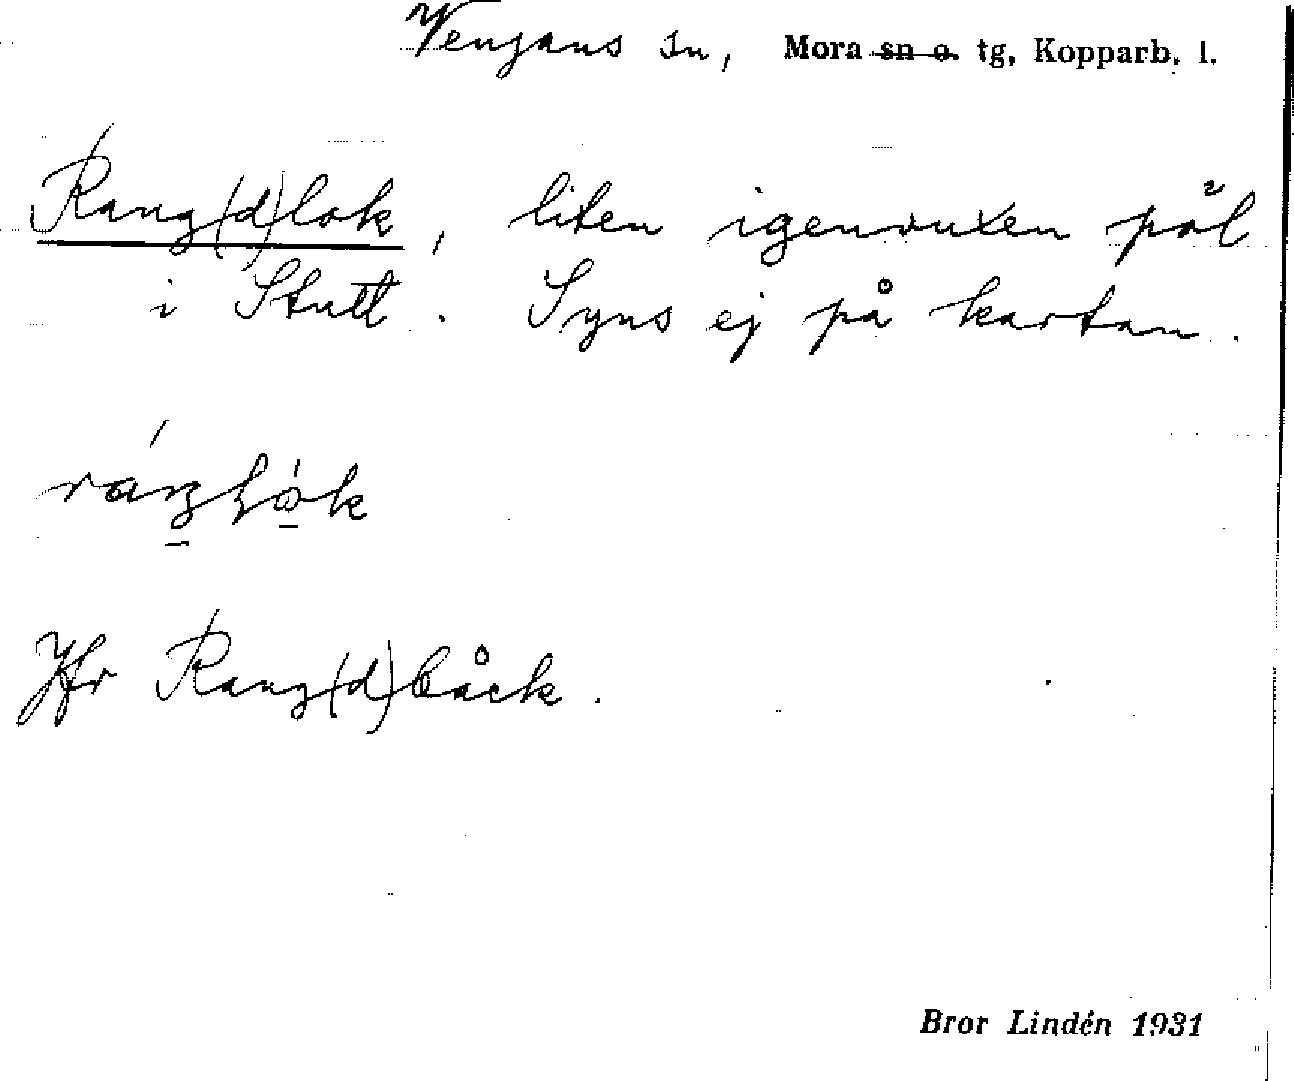 Venjans sn, Mora sn o. tg, Kopparb. l.
Rang(d)lok, liten igenvuxen pöl
i Stutt. Syns ej på kartan.
Jfr Rang(d)båck.
Bror Lindén 1931